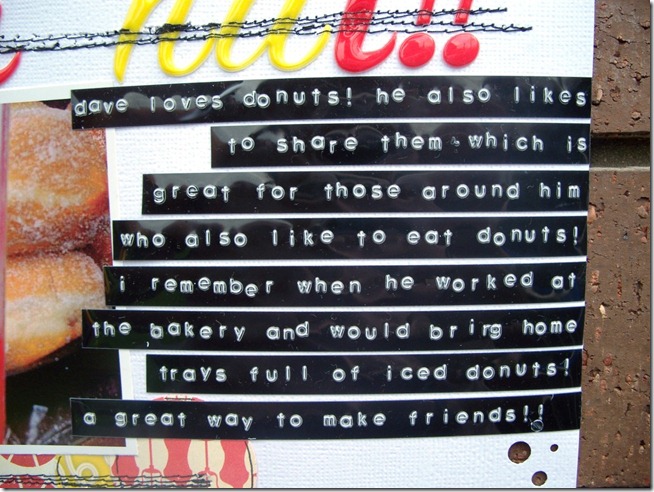 dave loves donuts! he also likes
to share them which is
great for those around him
who also like to eat donuts!
i remember when he worked at
the bakery and would bring home
trays full of iced donuts!
a great way to make friends!!